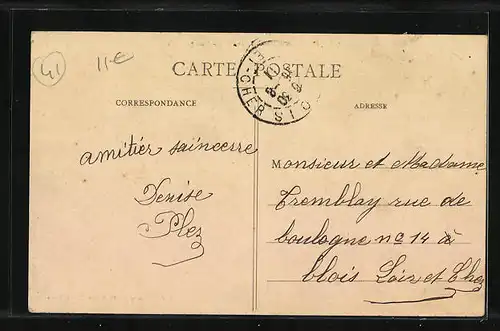 41
11-€
CARTE POSTALE
CORRESPONDANCE
ADRESSE
CHER
amitier saincerre
Denise
Plez
Monsieur et Madame
Tremblay rue de
boulogne no 14 à
blois Loir et Cher